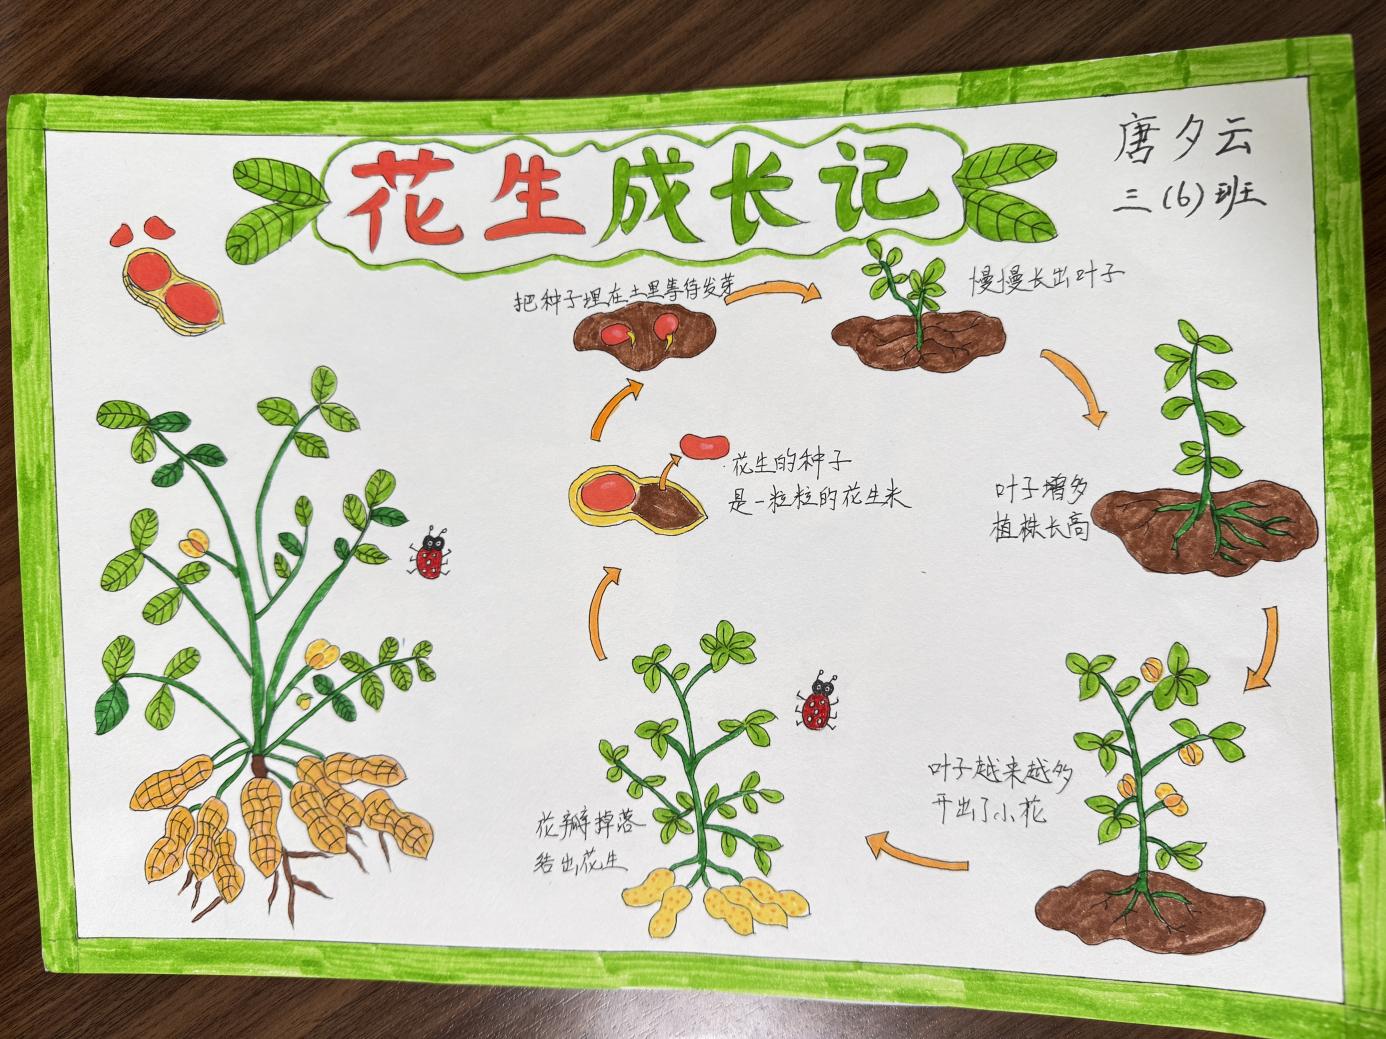 花生成长记
唐夕云
三(6)班
把种子埋在土里等待发芽
慢慢长出叶子
花生的种子
是一粒粒的花生米
叶子增多
植株长高
叶子越来越多
开出了小花
花瓣掉落
结出花生